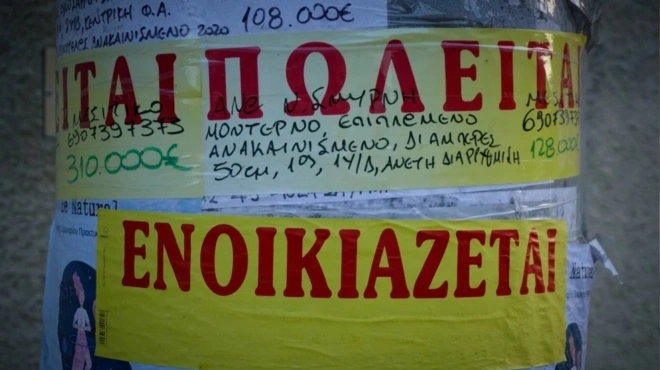 ΚΕΝΤΡΙΚΗ Φ.Α.
ΑΝΑΚΑΙΝΙΣΜΕΝΟ 2020
108.000€
ΕΙΤΑΙ
ΠΩΛΕΙΤΑΙ
ΜΕΣΙΤΙΚΟ
6907397373
310.000€
ΑΝΩ Ν. ΣΜΥΡΝΗ
ΜΟΝΤΕΡΝΟ, ΕΠΙΠΛΩΜΕΝΟ
ΑΝΑΚΑΙΝΙΣΜΕΝΟ, ΔΙΑΜΠΕΡΕΣ
50cm, 1ος, 1Υ/Δ, ΑΝΕΤΗ ΔΙΑΡΥΘΜΙΣΗ
ΜΕΣ
690739
128.000
Natural
ΕΝΟΙΚΙΑΖΕΤΑΙ